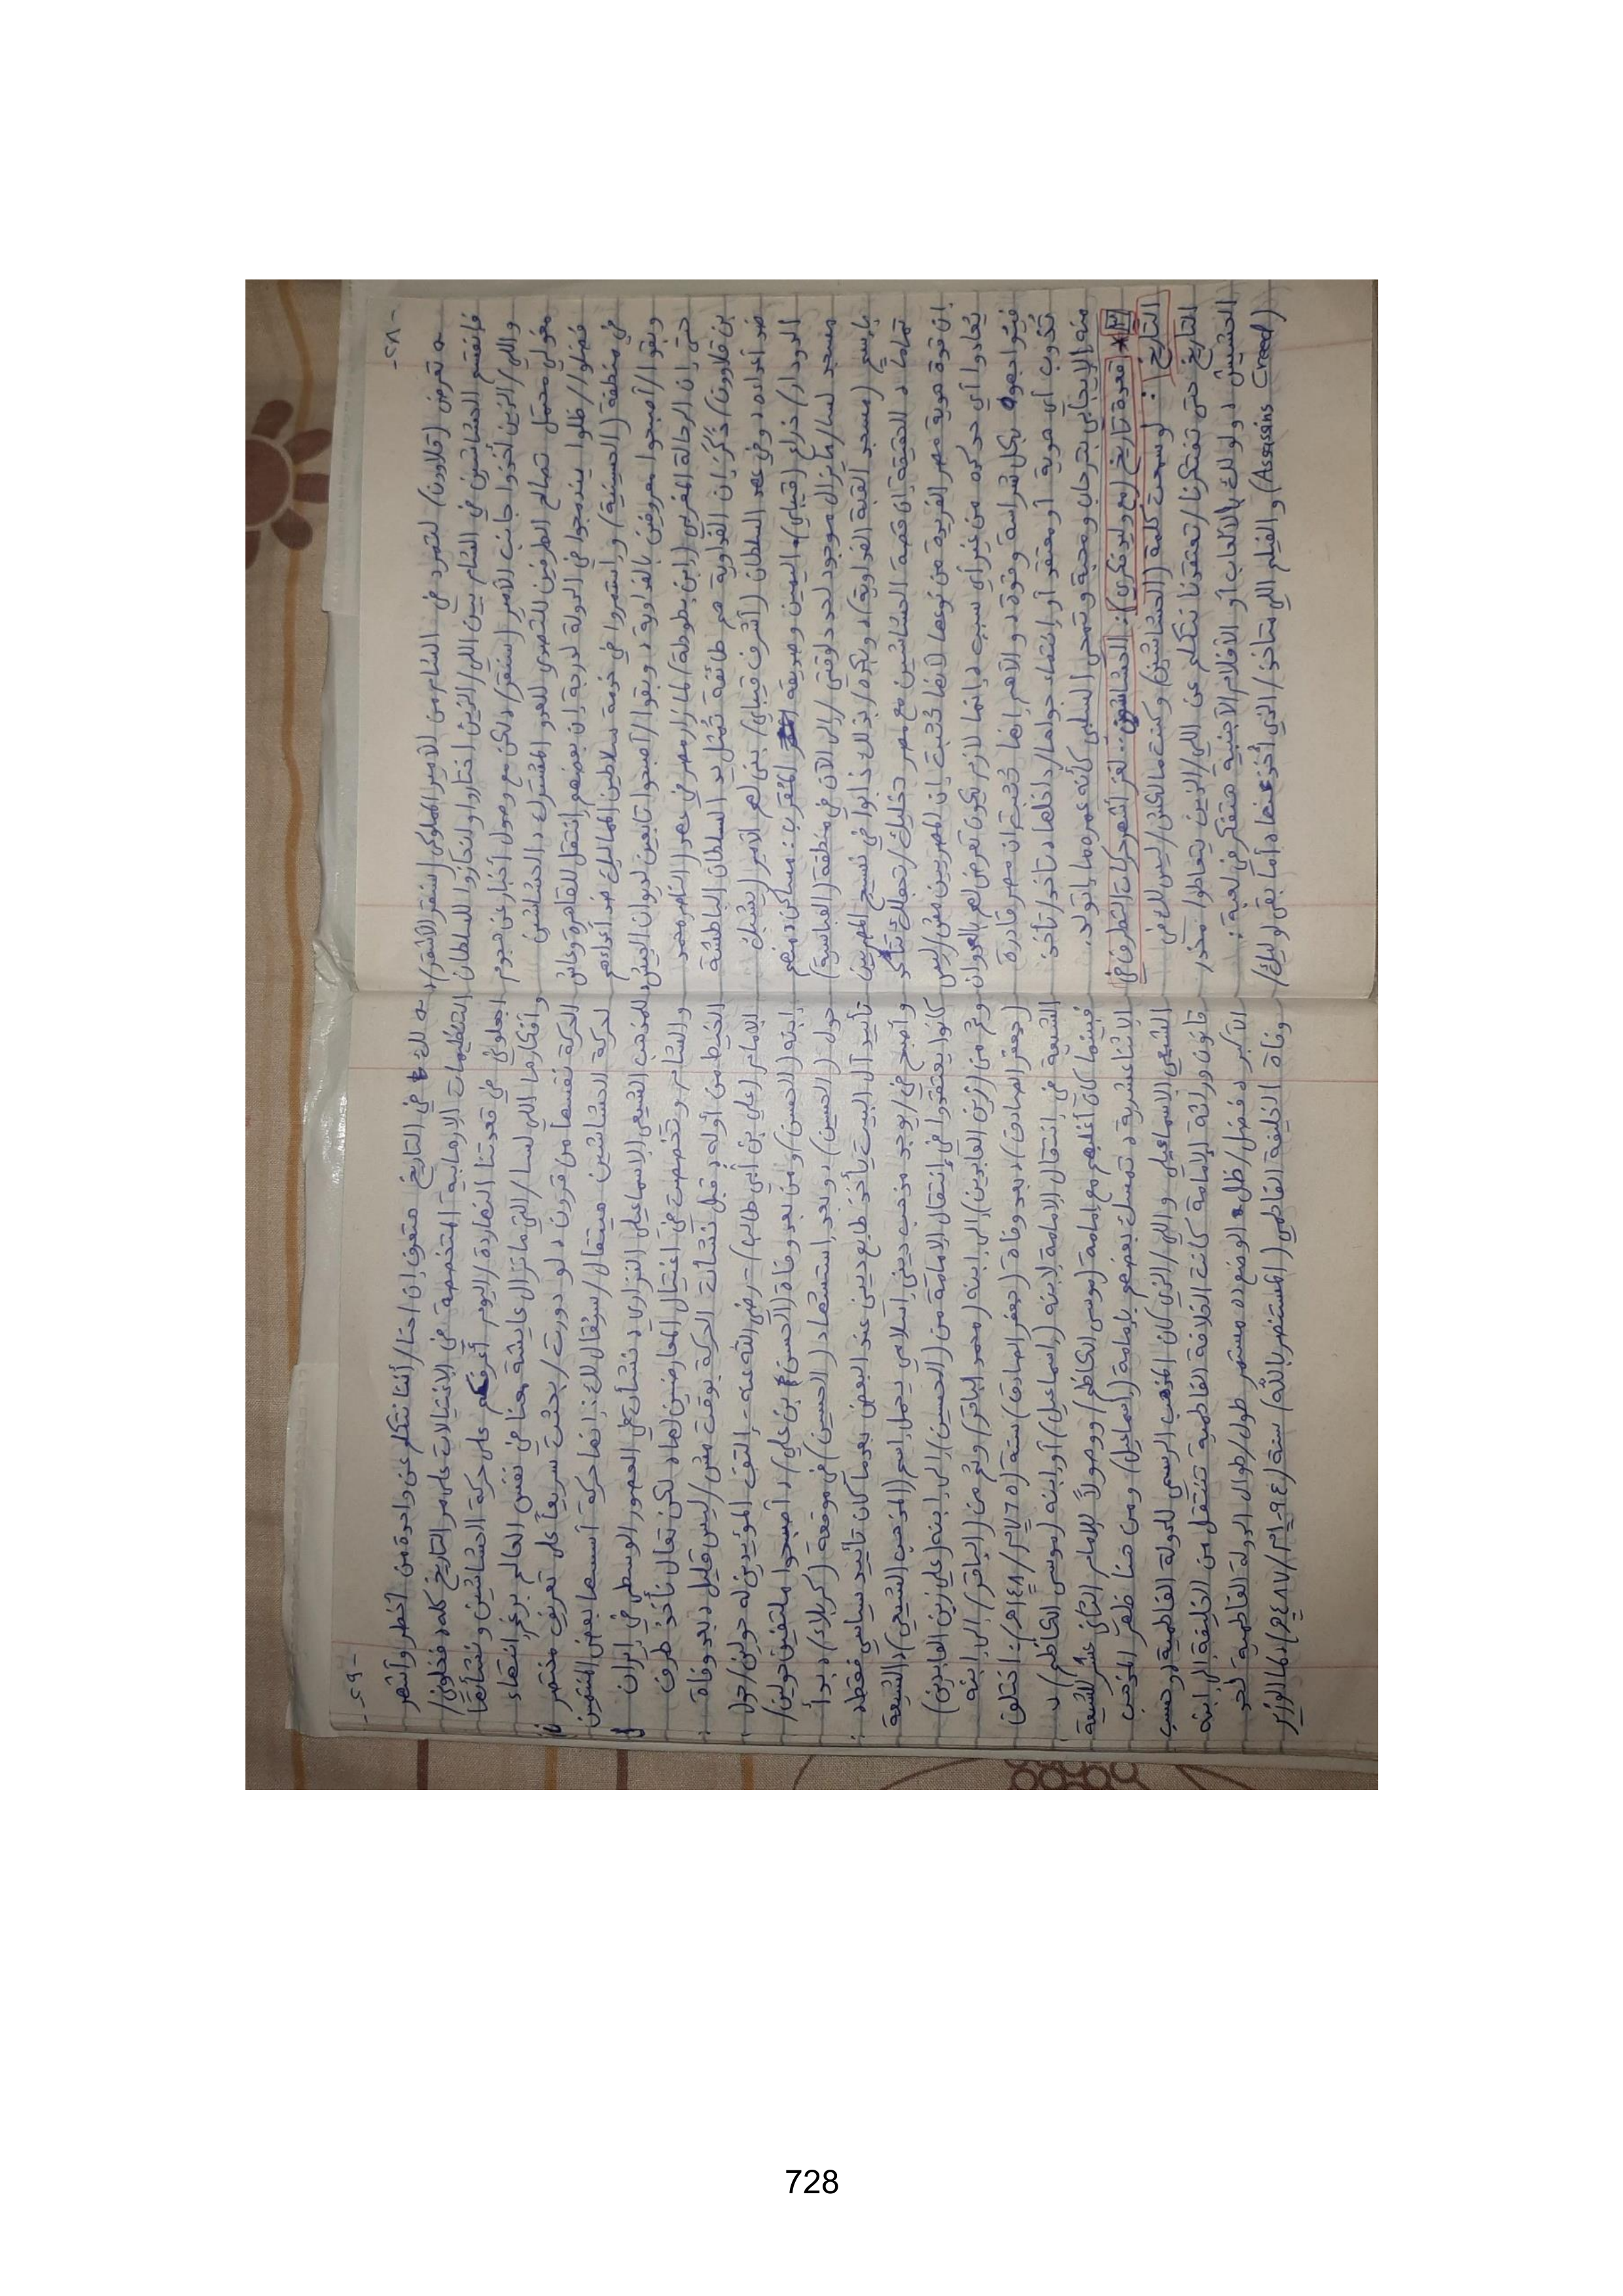 -٢٨-
ـه تعرض (قلاوون) لتمرد في الشام من الأمير المملوكي (سنقر الأشقر)،
فانقسم الحشاشين في الشام بين اللي/الذين اختاروا وانحازوا للسلطان
واللي/الذين أخذوا جانب الأمير (سنقر)، لكن مع وصول أخبار عن هجوم
مغولي محتمل تصالح الطرفين للتصدي للعدو المشترك، الحشاشين
فضلوا/ظلوا يندمجوا في الدولة لدرجة إن بعضهم انتقل للقاهرة وعاش
في منطقة (الحسينية) واستمروا في خدمة سلاطين المماليك ضد أعداءهم
وبقوا/أصبحوا معروفين بالفداوية، وبقوا/أصبحوا تابعين لديوان الجيش
حتى إن الرحالة المغربي (ابن بطوطة) لما زار مصر في عهد (الناصر محمد
بن قلاوون) ذكر إن الفداوية هم طائفة تمثل يد السلطان الباطشة
ضد أعداءه، وفي عهد السلطان (أشرف قيتباي) بنى لهم الأمير (يشبك
الدودار) ذراع (قيتباي) اليمين وصديقه المقرب: مساكن، منهم
مسجد لسا/مايزال موجود لحد دلوقتي/إلى الآن في منطقة (العباسية)
باسم (مسجد القبة الفداوية)، وبكده/بذلك ذابوا في نسيج المصريين
تماماً، الحقيقة إن قصة الحشاشين مع مصر تخليك/تجعلك تتأكد
إن قوة هوية مصر الفريدة من نوعها لأنها تُثبت إن المصريين مش/ليس
يُعادوا أي حد كده من غير أي سبب، إنما لازم يكون تعرض لهم بالعدوان
فيواجهوه بكل شراسة وقوة، والأهم إنها تُثبت إن مصر قادرة
تُذوب أي هوية أو معتقد أو انتماء جواها/داخلها، تاخد/تأخذ
منه الإيجابي بترحاب ومحبة وتمحي السلبي كأنه عمره ما اتولد.
* [٣] قعدة تاريخ (مع وليد فكري): الحشاشين.. لغز أشهر حركات التطرف في
التاريخ: لو سمعت كلمة (الحشاشين) وكنت مالكش/ليس لك في
التاريخ حتى تفتكرنا/تعتقدنا نتكلم عن اللي/الذين يتعاطوا مخدر
الحشيش، ولو لك بالألعاب أو الأفلام الأجنبية هتفكر في لعبة:
(Assasins Creed) والفيلم اللي متاخد/الذي أُخذ عنها، أما بقى لو ليك/
-٢٩-
ـه لك في التاريخ هتعرف إن احنا/أننا نتكلم عن واحدة من أخطر وأشهر
التنظيمات الإرهابية المتخصصة في الإغتيالات على مر التاريخ كله، فخلوني/
اجعلوني في قعدتنا النهاردة/اليوم أعرفكم على حركة الحشاشين ونشأتها
وأفكارها اللي لسا/التي ماتزال عايشة معنا في نفس العالم برغم إنتهاء
الحركة نفسها من قرون، لو دورت/بحثت سريعاً على تعريف مختصر
لحركة الحشاشين هيتقال/سيُقال لك: إنها حركة أسسها بعض المنتمين
للمذهب الشيعي الإسماعيلي النزاري، نشأت في العصور الوسطى في إيران
والشام وتخصصت في اغتيال المعارضين لها، لكن تعال نأخذ طرف
الخيط من أوله، قبل نشأت الحركة بوقت مش/ليس قليل، بعد وفاة
الإمام (علي بن أبي طالب) -رضي الله عنه- التف المؤيدين له حولين/حول
ابنه (الحسن)، ومن بعد وفاة (الحسن بن علي)، أصبحوا ملتفين حولين/
حول (الحسين)، وبعد استشهاد (الحسين) في موقعة (كربلاء)، بدأ
تأييد آل البيت يأخذ طابع ديني عند البعض بعدما كان تأييد سياسي فقط،
وأصبح في/يوجد مذهب ديني إسلامي يحمل اسم (المذهب الشيعي)، الشيعة
كانوا يعتقدوا في إنتقال الإمامة من (الحسين) إلى ابنه (علي زين العابدين)
وثم من (زين العابدين) إلى ابنه (محمد الباقر) وثم من (الباقر) إلى ابنه
(جعفر الصادق)، بعد وفاة (جعفر الصادق) سنة (٧٦٥م/١٤٨هـ): اختلف
الشيعة في انتقال الإمامة لابنه (إسماعيل) أو ابنه (موسى الكاظم)،
فبينما كان أغلبهم مع إمامة (موسى الكاظم) ووصولاً للإمام الثاني عشر للشيعة
الإثناعشرية، تمسك بعضهم بإمامة (إسماعيل) ومن هنا ظهر المذهب
الشيعي الإسماعيلي واللي/الذي كان المذهب الرسمي للدولة الفاطمية، وحسب
قانون وراثة الإمامة كانت الخلافة الفاطمية تنتقل من الخليفة إلى ابنه
الأكبر، فضل/ظل الوضع ده مستمر طول/طوال الدولة الفاطمية لحد
وفاة الخليفة الفاطمي (المستنصر بالله) سنة (١٠٩٤م/٤٨٧هـ)، لما الوزير
728